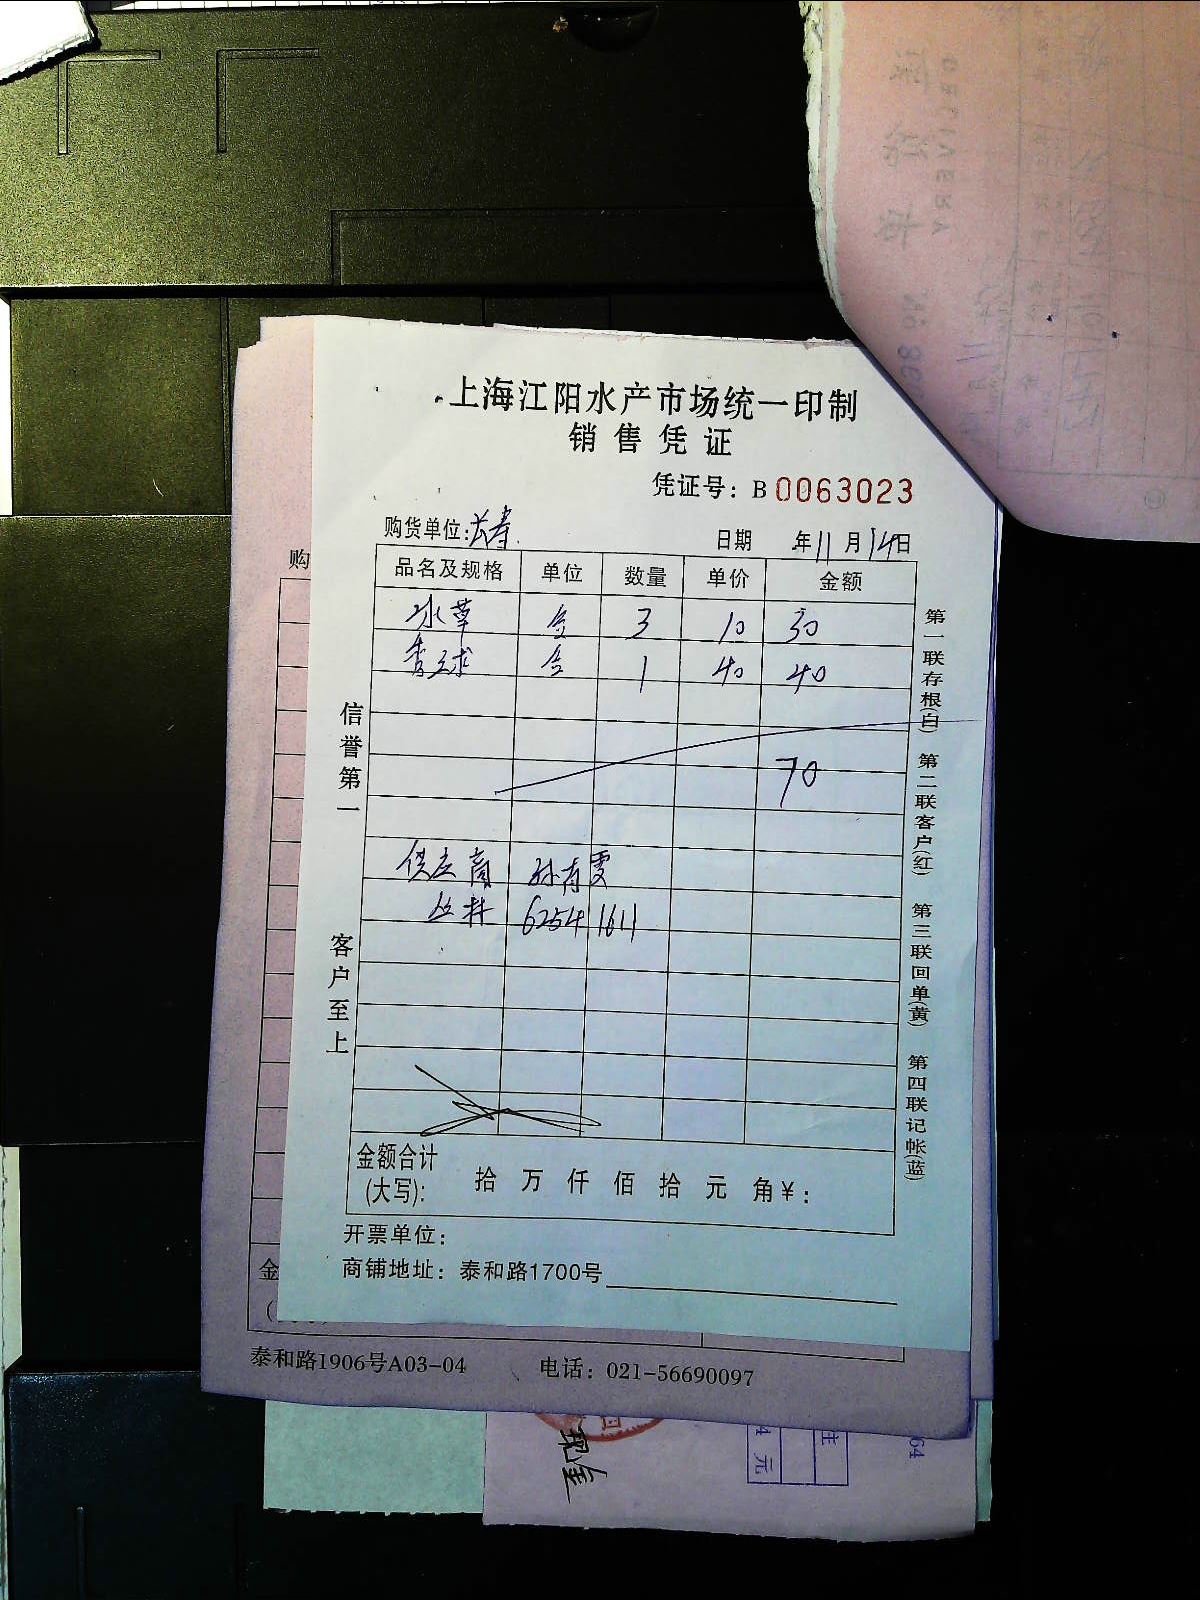 上海江阳水产市场统一印制
销售凭证
凭证号：B 0063023
购货单位:长寿 日期 年11月14日
品名及规格 单位 数量 单价 金额
水草 合 3 10 30
香球 合 1 40 40
70
供应商 孙有雯
丛林 6254 1611
金额合计
(大写): 拾 万 仟 佰 拾 元 角¥：
开票单位：
商铺地址：泰和路1700号
信誉第一
客户至上
第一联存根(白) 第二联客户(红) 第三联回单(黄) 第四联记帐(蓝)
购
金
泰和路1906号A03-04 电话：021-56690097
现金
4 元
64